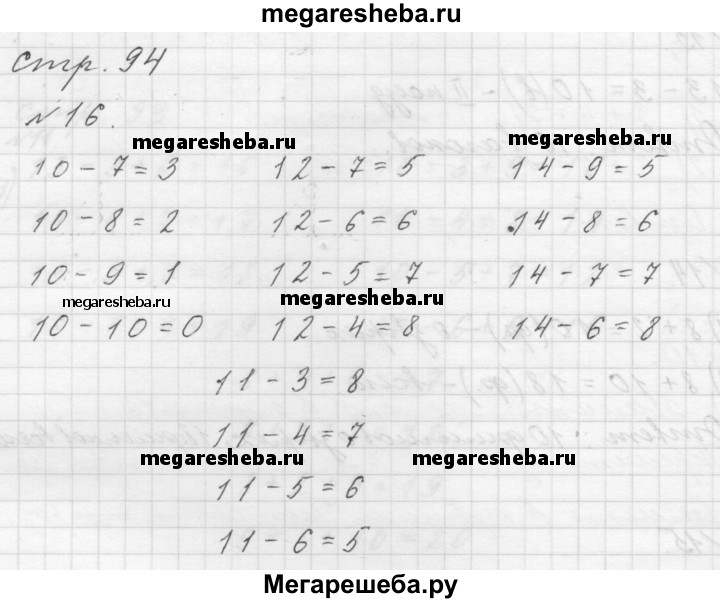 megaresheba.ru
стр. 94
№16.
megaresheba.ru megaresheba.ru
10 - 7 = 3 12 - 7 = 5 14 - 9 = 5
10 - 8 = 2 12 - 6 = 6 14 - 8 = 6
10 - 9 = 1 12 - 5 = 7 14 - 7 = 7
megaresheba.ru megaresheba.ru
10 - 10 = 0 12 - 4 = 8 14 - 6 = 8
11 - 3 = 8
11 - 4 = 7
megaresheba.ru megaresheba.ru
11 - 5 = 6
11 - 6 = 5
Мегарешеба.ру